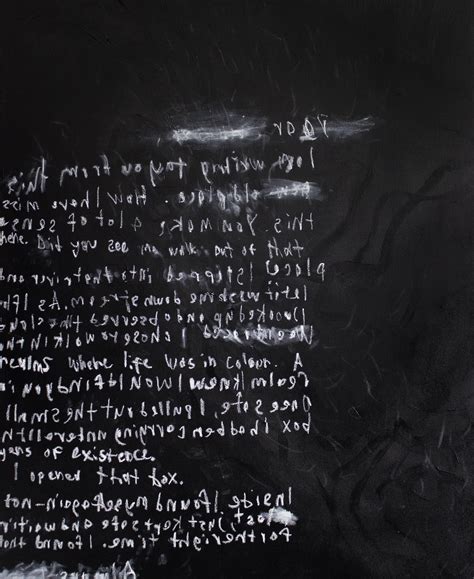 Dear
I am writing to you from this
old place. How I have miss
this. You make a lot of sens
here. Did you see me walk out to that
place I stepped into that river and
let it wash me downstream. As I
I looked up and observed the
I chose to walk in
realms where life was in colour. A
realm I knew I would find you in
Once safe, I pulled out the small
box I had been carrying
years of existence.
I opened that box.
Inside I found myself again - not
lost, just kept safe and waitin
for the right time. I found that
Always